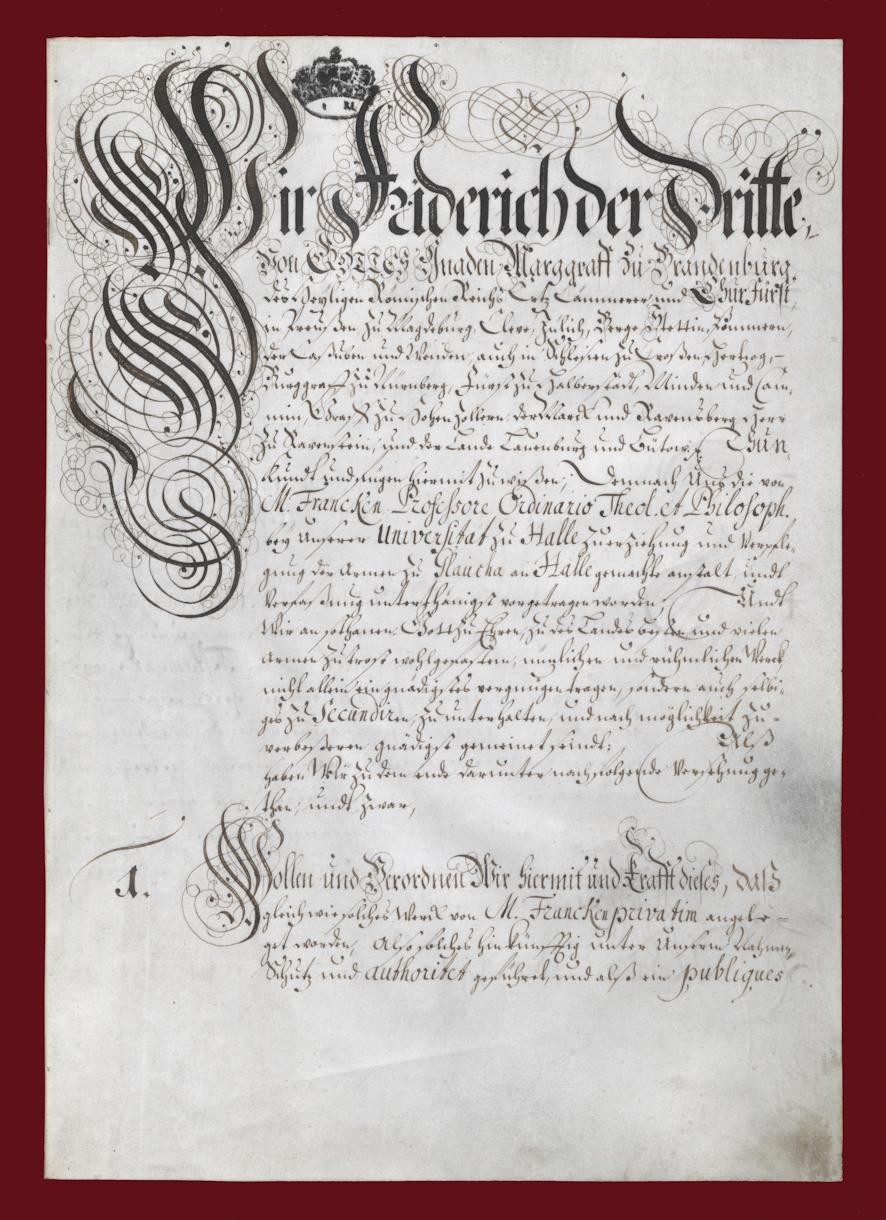 Wir Friderich der Dritte,
Von GOTTES Gnaden Marggraff zu Brandenburg,
des Heyligen Römischen Reichs Ertz Cämmerer, und Churfürst,
in Preußen, zu Magdeburg, Cleve, Jülich, Berge, Stettin, Pommern,
der Caßuben und Wenden, auch in Schlesien, zu Croßen Hertzog,
Burggraff zu Nürnberg, Fürst zu Halberstadt, Minden und Cam-
min, Graff zu Hohen Zollern, der Marck und Ravensberg, Herr
zu Ravenstein, und der Lande Lauenburg und Bütow, Thun
kundt und fügen hiermit zu wißen; Demnach Uns die von
M. Francken Professore Ordinario Theol. et Philosoph.
bey Unserer Universitat zu Halle zu erziehung und Verpfle-
gung der Armen zu Glaucha an Halle gemachte anstalt, undt
Verfaßung unterthänigst vorgetragen worden, Undt
Wir an sothanen, Gott zu Ehren, zu des Landes besten, und vielen
Armen zu trost wohlgefasten, nützlichen und rühmlichen Werck
nicht allein ein gnädigstes vergnügen tragen, sondern auch selbi-
ges zu Secundiren, zu unterhalten, und nach möglichkeit zu-
verbeßeren, gnädigst gemeinet seindt; Alß
haben Wir zu dem ende darunter nachfolgende Versehung ge-
than, undt zwar,
1. Wollen und Verordnen Wir hiermit und Krafft dieses, daß
gleich wie solches Werck von M. Francken privatim angele-
get worden, Also solches hinkünfftig unter Unserm Nahmen,
Schutz und authoritet geführet, und alß ein publiques